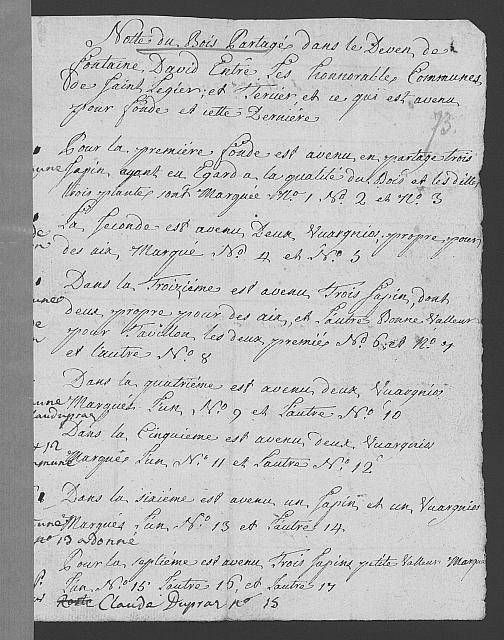 Notte du Bois Partagé dans le Deven de
Fontaine David Entre Les honnorable Communes
De Saint Legier, et et ce qui est avenu
pour fonde et cette Derniére
73
Pour la premiére fonde est avenu en partage trois
Sapin, ayant eu Egard a la qualité du Bois et les dittes
trois plante sont Marquée No 1 No 2 et No 3
La Seconde est avenu Deux Vuargnios propre pour
des aix Marqué No 4 et No 5
Dans la Troiziéme est avenu Trois Sapin, dont
deux propre pour des aix, et Lautre Bonne Valleur
pour Tavillon les deux premiés No 6 et No 7
et l'autre No 8
Dans la quatriéme est avenu deux Vuargnios
Marqués Lun No 9 et Lautre No 10
Dans la Cinquieme est avenu deux Vuargnios
Marqué Lun No 11 et Lautre No 12
Dans la sixiéme est avenu un Sapin et un Vuargnios
Marqués Lun No 13 et Lautre 14
no 13 a Donné
Pour la septiéme est avenu Trois Sapins petite Valleur Marqué
Lun No 15 Lautre 16, et Lautre 17
Claude Dupraz no 15